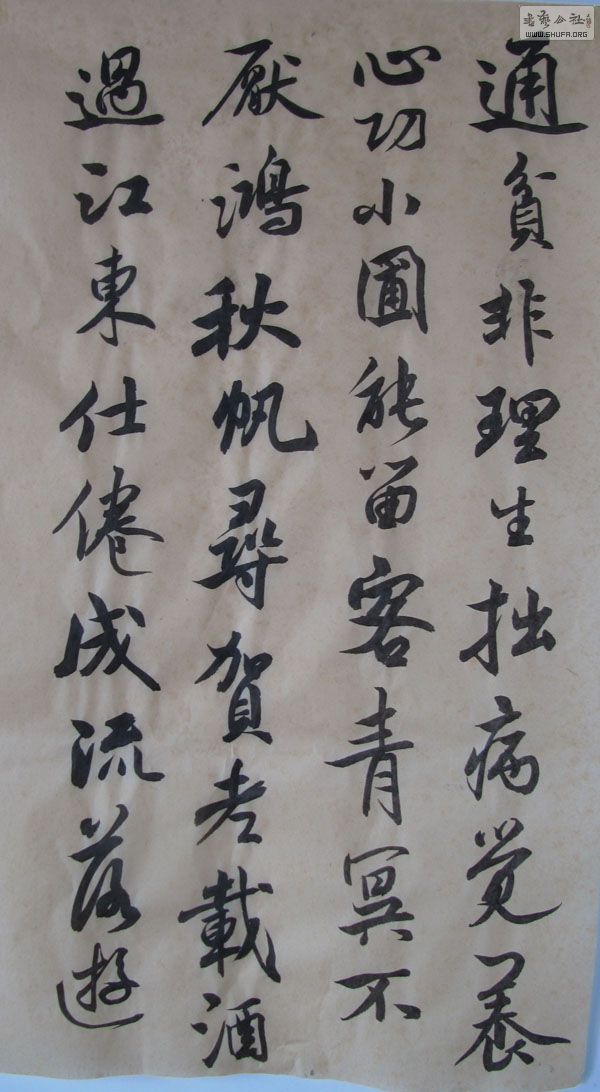 通貧非理生拙病覺養
心功小圃能留客青冥不
厭鴻秋帆尋賀老載酒
過江東仕倦成流落遊
書藝公社
WWW.SHUFA.ORG